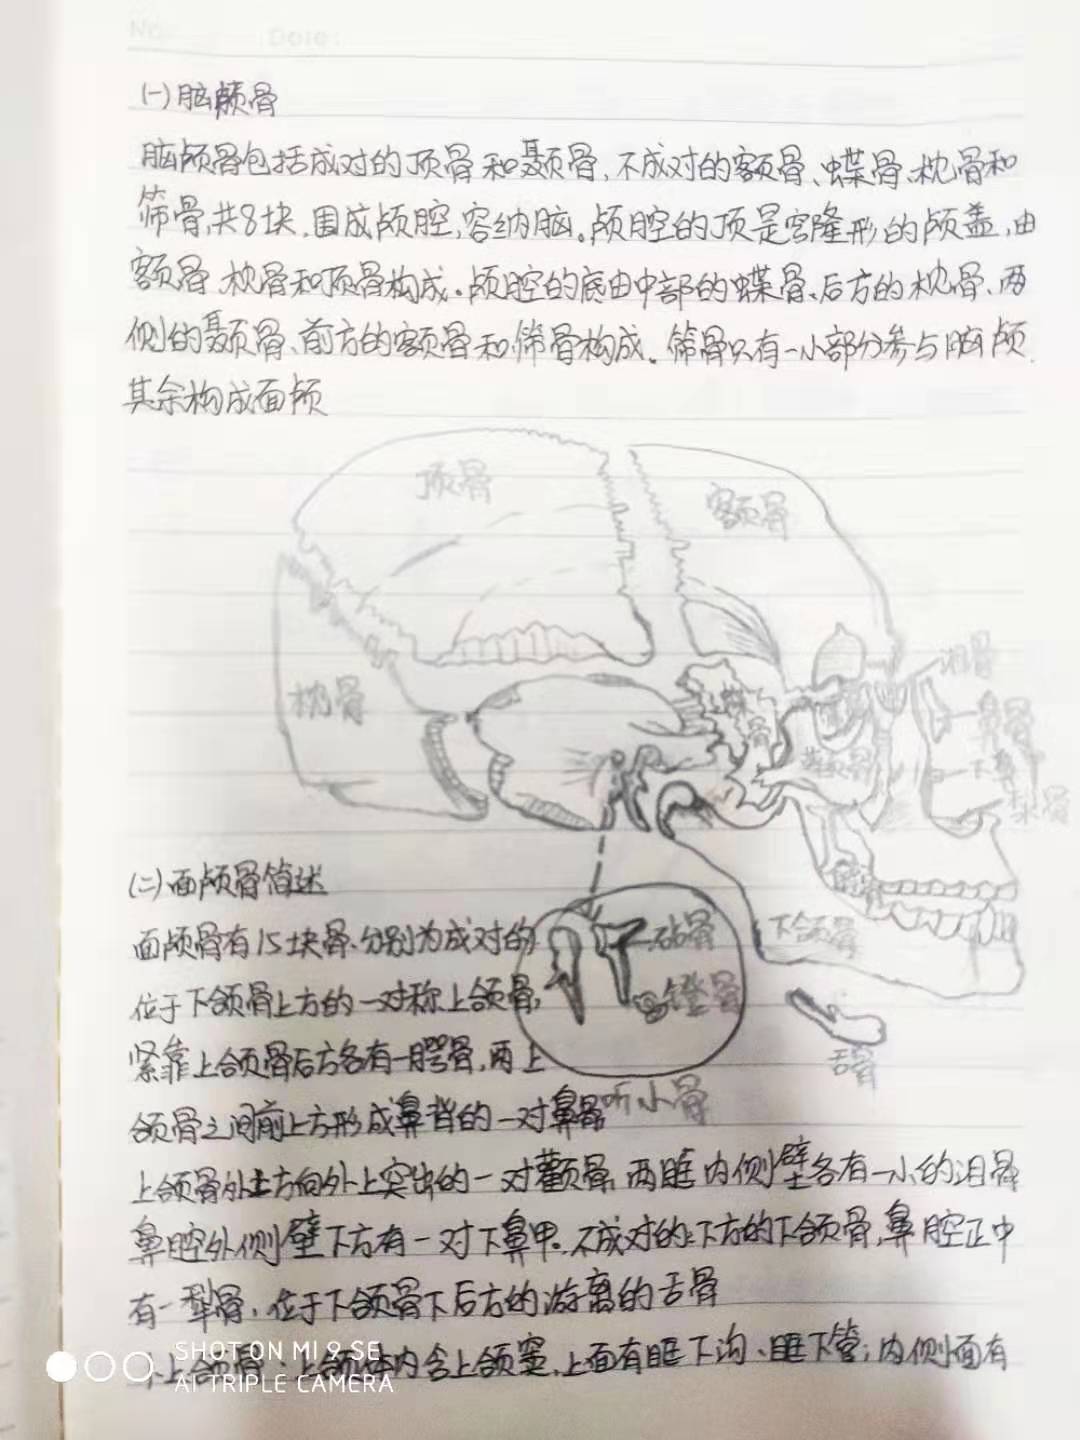 No:
Date:
(一)脑颅骨
脑颅骨包括成对的顶骨和颞骨,不成对的额骨、蝶骨、枕骨和
筛骨,共8块,围成颅腔,容纳脑。颅腔的顶是穹隆形的颅盖,由
额骨、枕骨和顶骨构成。颅腔的底由中部的蝶骨、后方的枕骨、两
侧的颞骨、前方的额骨和筛骨构成。筛骨只有一小部分参与脑颅,
其余构成面颅
顶骨
额骨
枕骨
蝶骨
泪骨
鼻骨
下鼻甲
犁骨
颧骨
(二)面颅骨简述
面颅骨有15块骨,分别为成对的
位于下颌骨上方的一对称上颌骨,
紧靠上颌骨后方各有一腭骨,两上
颌骨之间前上方形成鼻背的一对鼻骨
砧骨
镫骨
听小骨
下颌骨
舌骨
上颌骨外上方向外上突出的一对颧骨,两眶内侧壁各有一小的泪骨
鼻腔外侧壁下方有一对下鼻甲。不成对的:下方的下颌骨,鼻腔正中
有一犁骨,位于下颌骨下后方的游离的舌骨
1、上颌骨:上颌体内含上颌窦,上面有眶下沟、眶下管;内侧面有
SHOT ON MI 9 SE
AI TRIPLE CAMERA